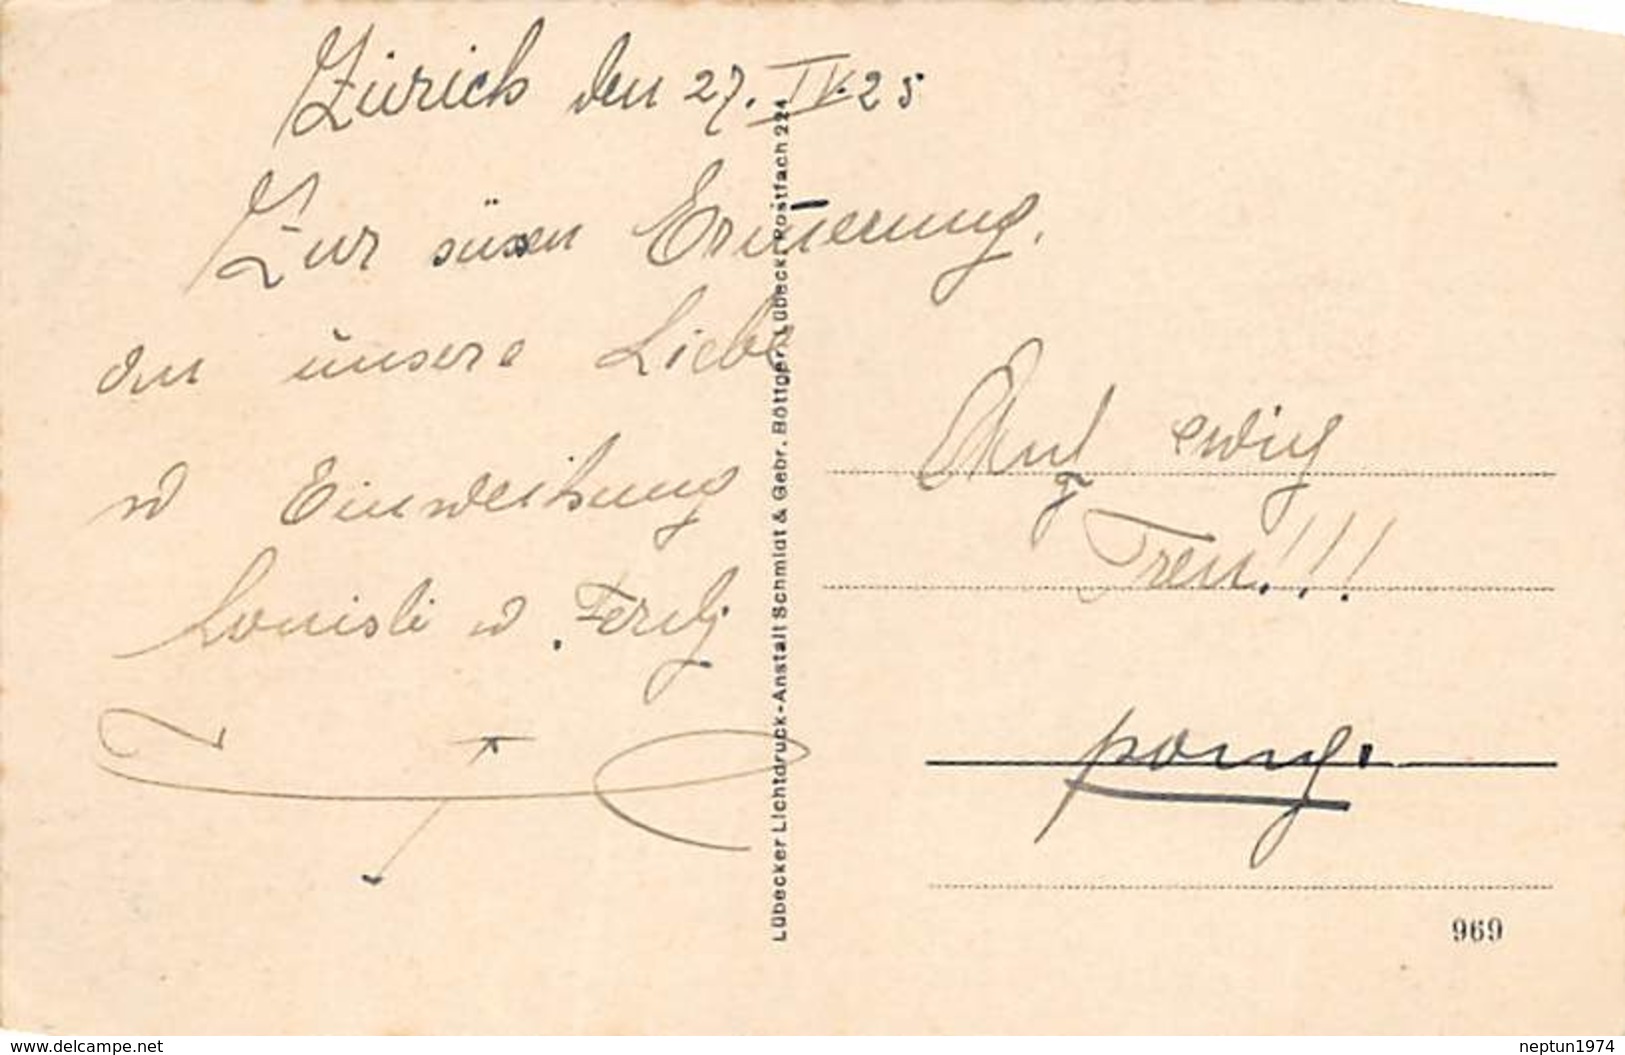 Zürich den 27. IV. 25
Zur süssen Erinnerung.
an unsere Liebe
u Einweihung
Louisli u. Ferdy
Auf ewig
Treu!!!
Lübecker Lichtdruck-Anstalt Schmidt & Gebr. Böttger, Lübeck, Postfach 224
969
www.delcampe.net
neptun1974